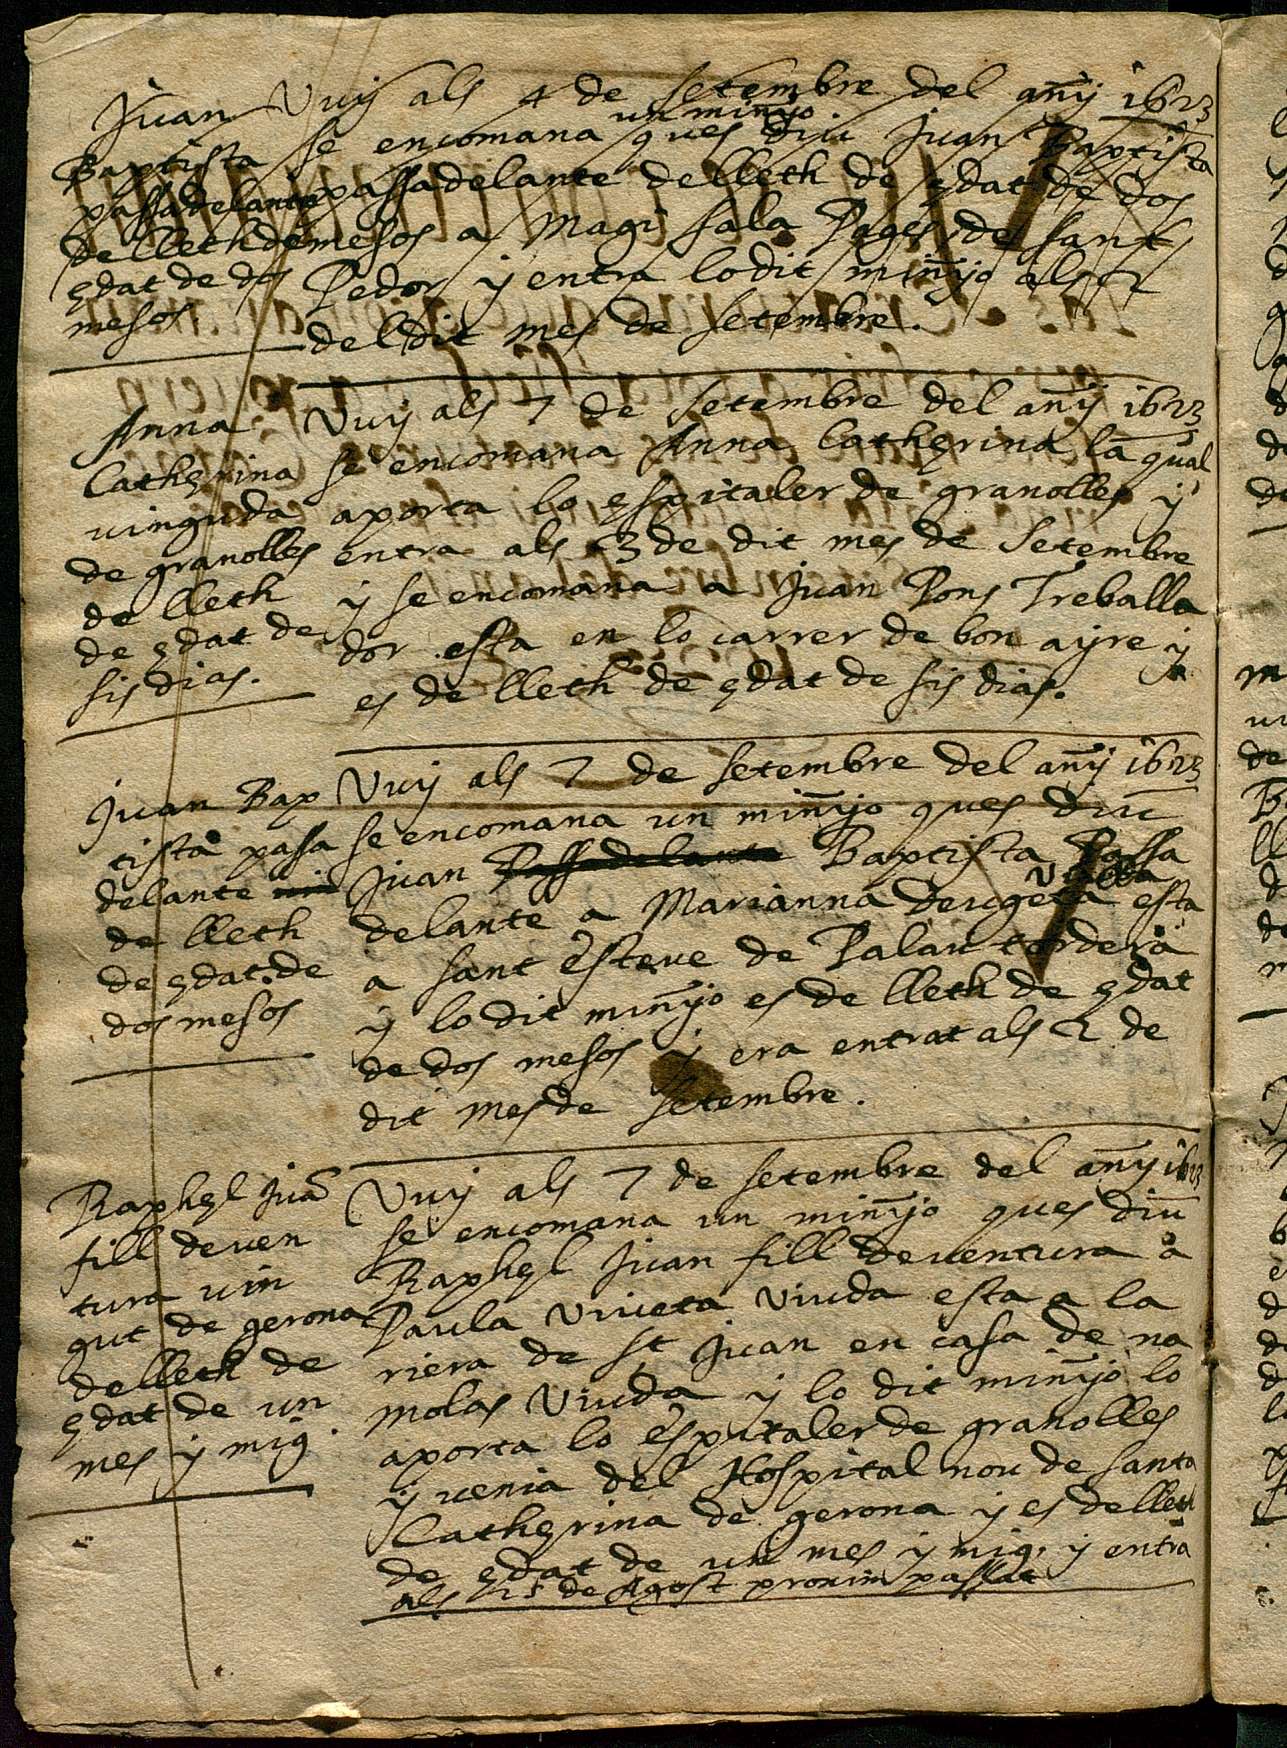 Juan
Baptista
passadelante
de lleth de
edat de dos
mesos
Vuy als 4 de setembre del añy 1623
se encomana un minyo ques diu Juan Baptista
passadelante de lleth de edat de dos
mesos a Magi Sala Pages de sant
Pedor y entra lo dit minÿo als 2
del dit mes de setembre.
Anna
Catherina
vinguda
de granolles
de lleth
de edat de
sis dias.
Vuy als 7 de setembre del añy 1623
se encomana Anna Catherina la qual
aporta lo espitaler de granolles y
entra als 3 de dit mes de setembre
y se encomana a Juan Pons Treballa
dor esta en lo carrer de bon ayre y
es de lleth de edat de sis dias.
Juan Bap
tista pasa
delante
de lleth
de edat de
dos mesos
Vuy als 7 de setembre del añy 1623
se encomana un minÿo ques diu
Juan Passadelante Baptista Passa
delante a Marianna viuda esta
a sant Esteve de Palau tordera
y lo dit minÿo es de lleth de edat
de dos mesos y era entrat als 2 de
dit mes de setembre.
Raphel Juã
fill deven
tura vin
gut de gerona
de lleth de
edat de un
mes y mig.
Vuy als 7 de setembre del añy 1623
se encomana un minÿo ques diu
Raphel Juan fill deventura a
Paula Viveta Viuda esta a la
riera de st Juan en casa de na
Molas Viuda y lo dit minÿo lo
aporta lo espitaler de granolles
y venia del Hospital nou de santa
Catherina de gerona y es de lleth
de edat de un mes y mig. y entra
als 25 de Agost proxim passat